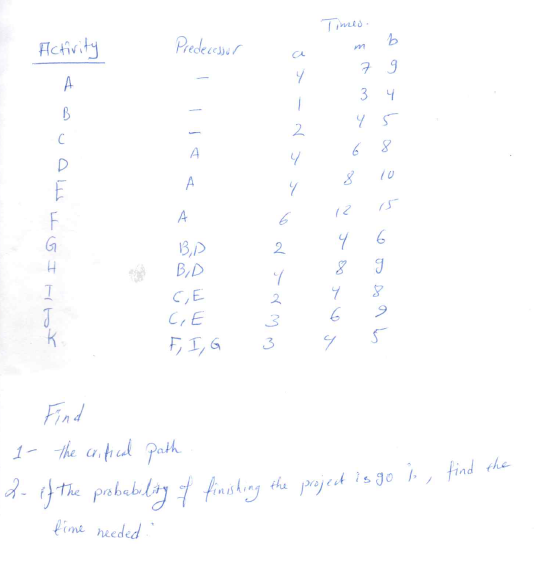 Times.
Activity Predecessor a m b
A — 4 7 9
B — 1 3 4
C — 2 4 5
D A 4 6 8
E A 4 8 10
F A 6 12 15
G B,D 2 4 6
H B,D 4 8 9
I C,E 2 4 8
J C,E 3 6 9
K F,I,G 3 4 5
Find
1- the critical path
2- if the probability of finishing the project is 90 %, find the
time needed.